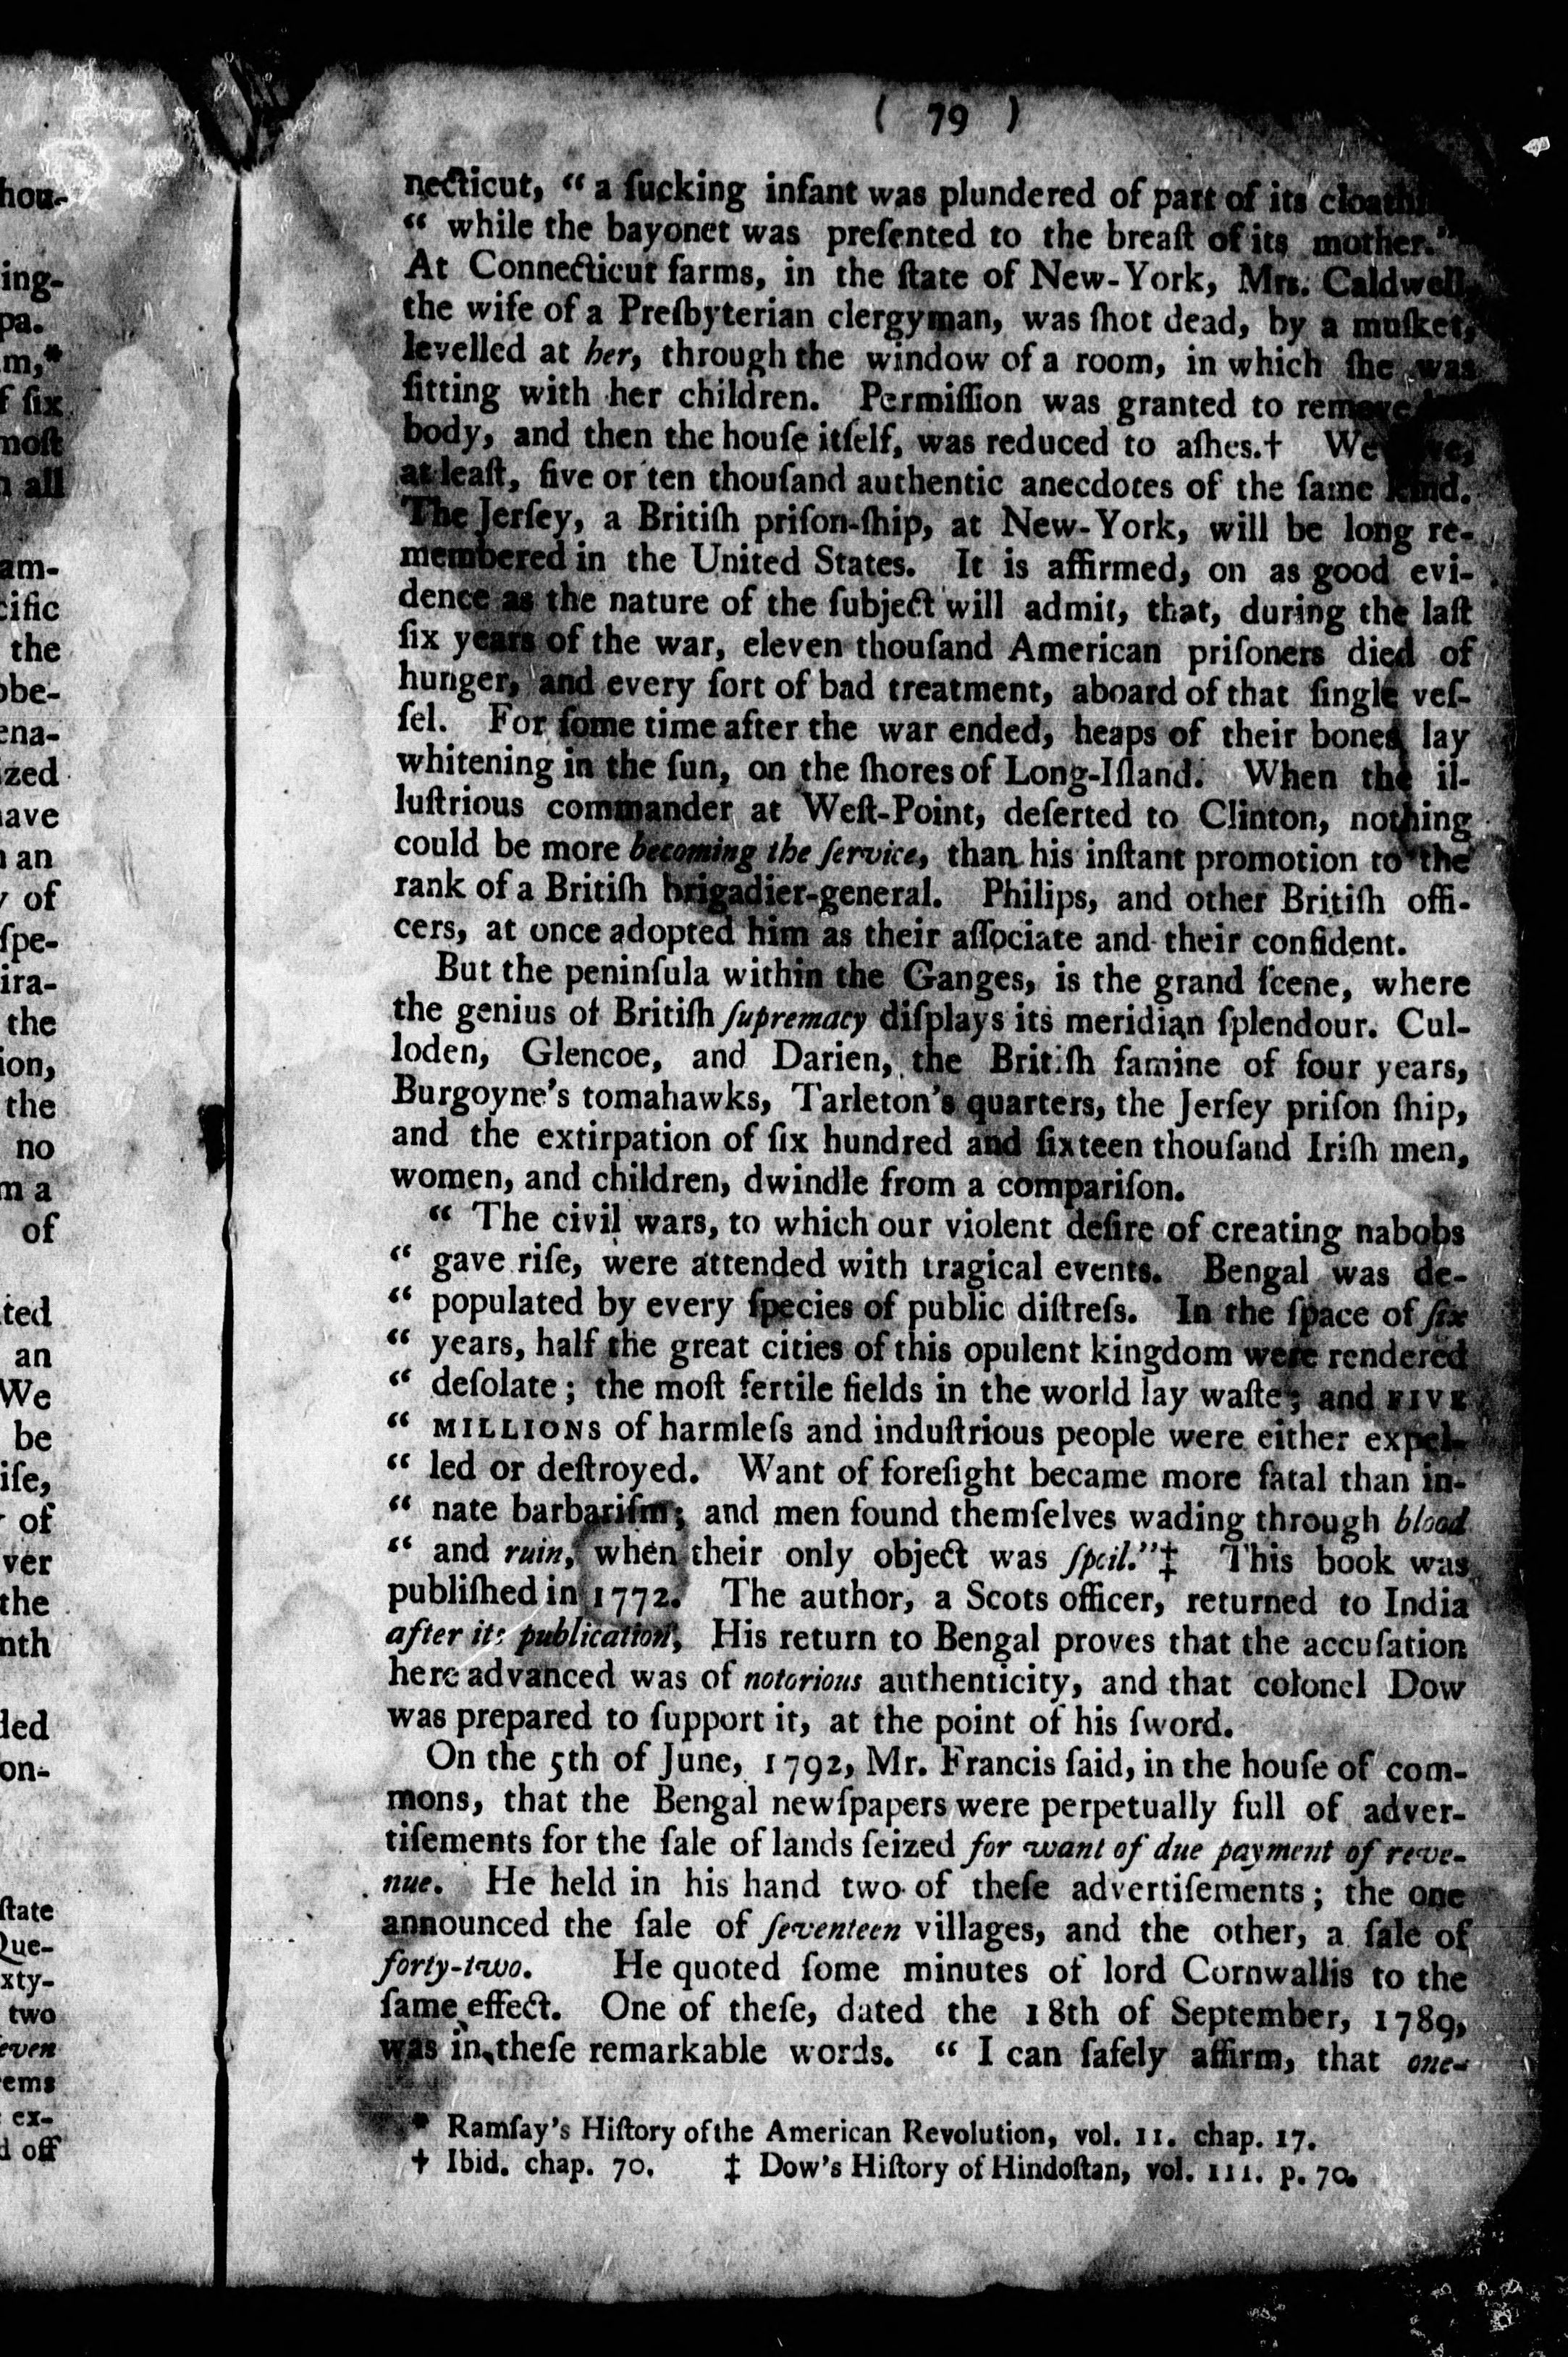 ( 79 )
necticut, “ a ſucking infant was plundered of part of its
“ while the bayonet was preſented to the breaſt of its mother.”
At Connecticut farms, in the ſtate of New-York, Mrs. Caldwell,
the wife of a Preſbyterian clergyman, was ſhot dead, by a muſket,
levelled at her, through the window of a room, in which ſhe was
ſitting with her children. Permiſſion was granted to remove
body, and then the houſe itſelf, was reduced to aſhes.† We
at leaſt, five or ten thouſand authentic anecdotes of the ſame kind.
The Jerſey, a Britiſh priſon-ſhip, at New-York, will be long re-
membered in the United States. It is affirmed, on as good evi-
dence as the nature of the ſubject will admit, that, during the laſt
ſix years of the war, eleven thouſand American priſoners died of
hunger, and every ſort of bad treatment, aboard of that ſingle veſ-
ſel. For ſome time after the war ended, heaps of their bones lay
whitening in the ſun, on the ſhores of Long-Iſland. When the il-
luſtrious commander at Weſt-Point, deſerted to Clinton, nothing
could be more becoming the ſervice, than his inſtant promotion to the
rank of a Britiſh brigadier-general. Philips, and other Britiſh offi-
cers, at once adopted him as their aſſociate and their confident.
But the peninſula within the Ganges, is the grand ſcene, where
the genius of Britiſh ſupremacy diſplays its meridian ſplendour. Cul-
loden, Glencoe, and Darien, the Britiſh famine of four years,
Burgoyne’s tomahawks, Tarleton’s quarters, the Jerſey priſon ſhip,
and the extirpation of ſix hundred and ſixteen thouſand Iriſh men,
women, and children, dwindle from a compariſon.
“ The civil wars, to which our violent deſire of creating nabobs
“ gave riſe, were attended with tragical events. Bengal was de-
“ populated by every ſpecies of public diſtreſs. In the ſpace of ſix
“ years, half the great cities of this opulent kingdom were rendered
“ deſolate ; the moſt fertile fields in the world lay waſte ; and FIVE
“ MILLIONS of harmleſs and induſtrious people were either expel-
“ led or deſtroyed. Want of foreſight became more fatal than in-
“ nate barbariſm ; and men found themſelves wading through blood
“ and ruin, when their only object was ſpoil.”‡ This book was
publiſhed in 1772. The author, a Scots officer, returned to India
after its publication, His return to Bengal proves that the accuſation
here advanced was of notorious authenticity, and that colonel Dow
was prepared to ſupport it, at the point of his ſword.
On the 5th of June, 1792, Mr. Francis ſaid, in the houſe of com-
mons, that the Bengal newſpapers were perpetually full of adver-
tiſements for the ſale of lands ſeized for want of due payment of reve-
nue. He held in his hand two of theſe advertiſements ; the one
announced the ſale of ſeventeen villages, and the other, a ſale of
forty-two. He quoted ſome minutes of lord Cornwallis to the
ſame effect. One of theſe, dated the 18th of September, 1789,
was in theſe remarkable words. “ I can ſafely affirm, that one-
* Ramſay’s Hiſtory of the American Revolution, vol. II. chap. 17.
† Ibid. chap. 70. ‡ Dow’s Hiſtory of Hindoſtan, vol. III. p. 70.